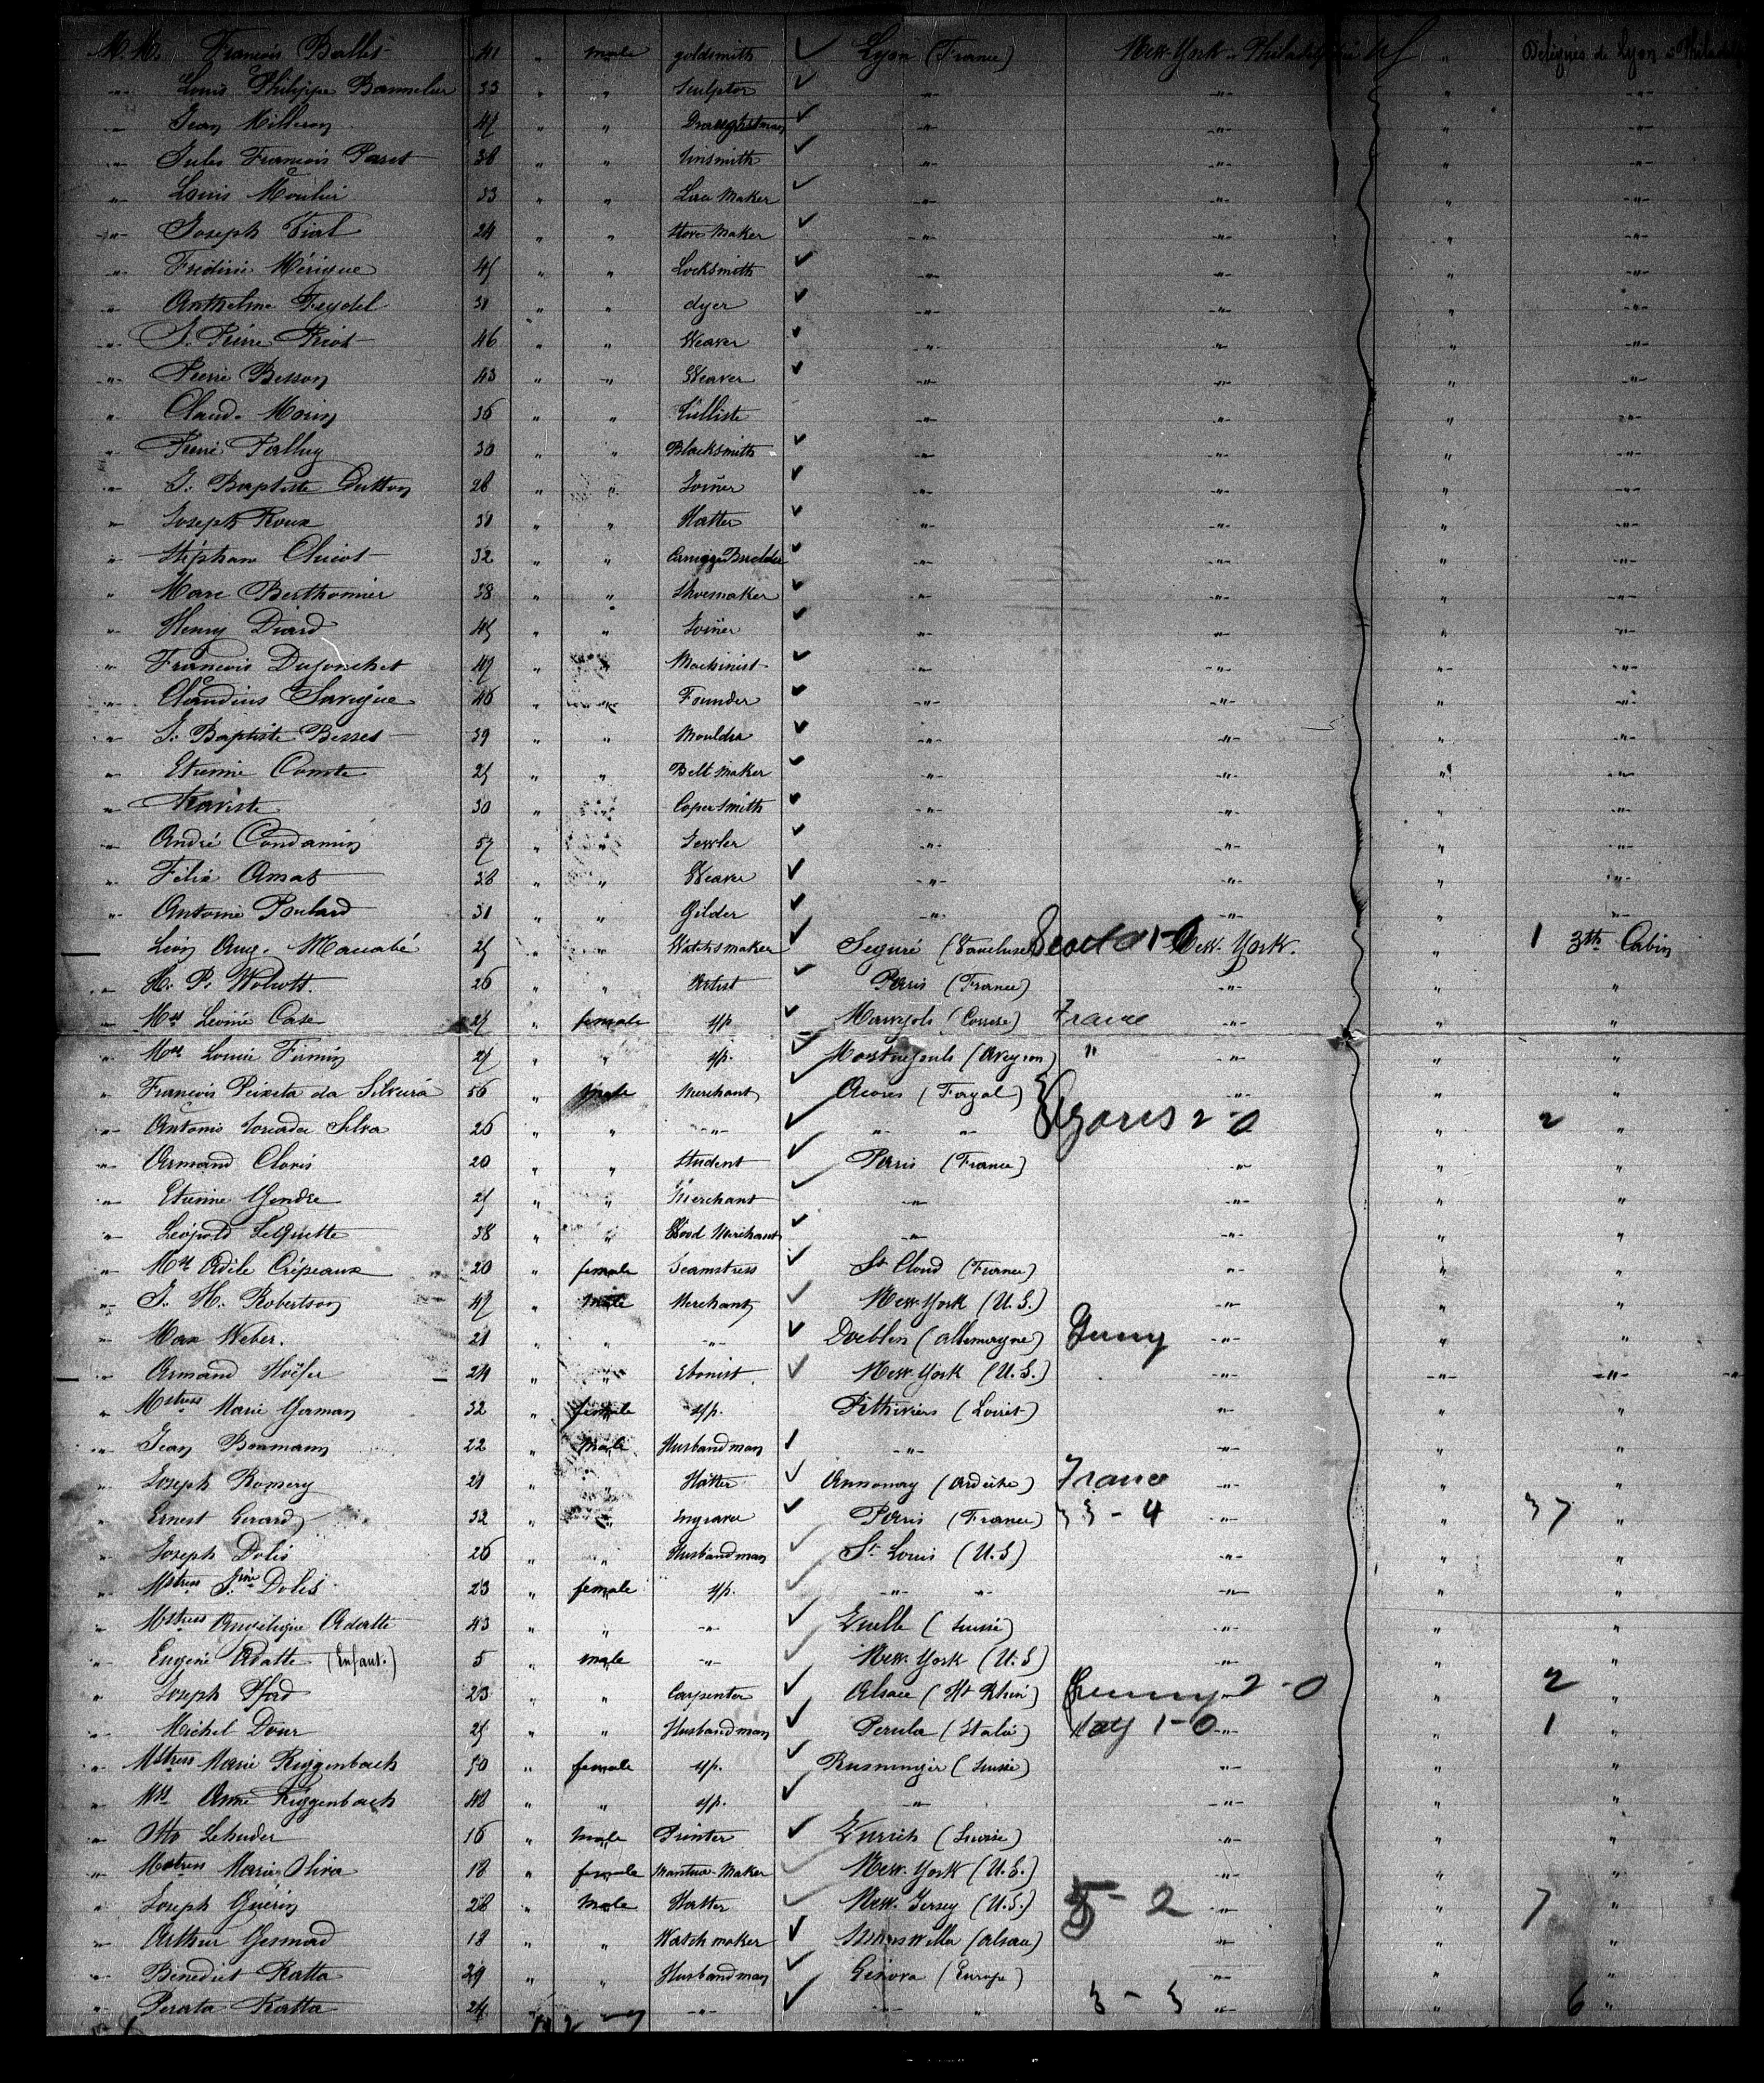 M. M. François Ballet 41 " male goldsmith Lyon (France) New-York & Philadelphie US " Delegués de Lyon à Philadel
-"- Louis Philippe 33 " " Sculptor -"- -"- " -"-
-"- Jean Milleron 47 " " Draughtsman -"- -"- " -"-
-"- Jules François Paret 38 " " tinsmith -"- -"- " -"-
-"- Louis Moulin 33 " " Maker -"- -"- " -"-
-"- Joseph Vial 24 " " Stove Maker -"- -"- " -"-
-"- Frédéric Mérigue 45 " " Locksmith -"- -"- " -"-
-"- Anthelme Feydel 31 " " dyer -"- -"- " -"-
-"- J. Pierre Picot 46 " " Weaver -"- -"- " -"-
-"- Pierre Besson 43 " -"- Weaver -"- -"- " -"-
" Claude Morin 36 " " Tulliste -"- -"- " -"-
" Pierre 30 " " Blacksmith -"- -"- " -"-
-"- J. Baptiste Dutton 28 " " Joiner -"- -"- " -"-
" Joseph Roux 31 " " Hatter -"- -"- " -"-
" Stéphane 32 " " Carriage Builder -"- -"- " -"-
" Marc Berthomier 38 " " Shoemaker -"- -"- " -"-
" Henry Diard 45 " " Joiner -"- -"- " -"-
" François Dujonchet 47 " " Machinist -"- -"- " -"-
-"- Claudius Savigne 46 " " Founder -"- -"- " -"-
-"- J. Baptiste Besset 39 " " Mouldra -"- -"- " -"-
" Etienne Comte 25 " " Belt Maker -"- -"- " -"-
" Traviste 30 " " Coper Smith -"- -"- " -"-
" André Condamin 57 " " Jewler -"- -"- " -"-
" Félix Amat 38 " " Weaver -"- -"- " -"-
" Antoine Poulard 31 " " Gilder -"- -"- " -"-
Léon Aug. Macabé 25 " " Watchsmaker Seguré (Vaucluse) 1-0 New-York. " 1 3th Cabin
-"- H. P. Wolcott. 26 " " Artist Paris (France) -"- " "
" Mrs Leonie Case 27 " female s/p (Correze) France -"- " "
" Louise Firmin 27 " " s/p. (Aveyron) " -"- " "
" François Peixota da Silveira 56 " male Merchant Acores (Fayal) -"- " "
-"- Antonio Silva 26 " " -"- -"- -"- Azores 2-0 " 2 "
-"- Armand Clovis 20 " " Student Paris (France) -"- " "
-"- Etienne Gendre 25 " " Merchant -"- -"- " "
-"- Léopold 38 " " Wood Merchant -"- " "
-"- Adèle Crépeaux 20 " female Seamstress St Cloud (France) -"- " "
-"- J. H. Robertson 47 " male Merchant New-York (U.S.) -"- " "
-"- Max Weber. 21 " " -"- Doeblen (allemagne) Germy -"- " "
" Armand Hoëfer 24 " " Ebonist New-York (U.S.) -"- -"- -"-
" Mstress Marie German 32 " female s/p. Pithiviers (Loiret) -"- " "
-"- Jean Bormann 22 " male Husbandman -"- -"- " "
" Joseph Romery 21 " " Hatter Annonay (Ardèche) France -"- " "
" Ernest Gerard 32 " " Engraver Paris (France) 33-4 -"- 37 "
" Joseph Dolis 26 " " Husbandman St Louis (U.S) -"- " "
-"- Mstress Dolis 23 " female s/p. -"- -"- -"- " "
-"- Mstress Angélique Adatte 43 " " -"- (Suisse) -"- " "
-"- Eugène Adatte (Enfant.) 5 " male -"- New-York (U.S) -"- " "
" Joseph Pford 23 " " Carpenter Alsace (Ht Rhin) Germy 2-0 " 2 "
" Michel Dour 25 " " Husbandman Perula (Italie) Italy 1-0 -"- " 1 "
-"- Mstress Marie Riggenbach 50 " female s/p. (Suisse) -"- " "
" Anne Riggenbach 48 " " s/p. -"- -"- " "
" Otto 16 " male Printer Zurich (Suisse) -"- " "
" Mstress Marie Oliva 18 " female Mantua-Maker New-York (U.S.) -"- " "
" Joseph Guérin 28 " male Hatter New-Jersey (U.S.) 5-2 -"- " 7 "
" Arthur 18 " " Watch maker (Alsace) -"- " "
" Benedict Ratta 29 " " Husbandman Genova (Europe) -"- " "
" Perata Ratta 24 " -"- -"- " 3-3 -"- " 6 "